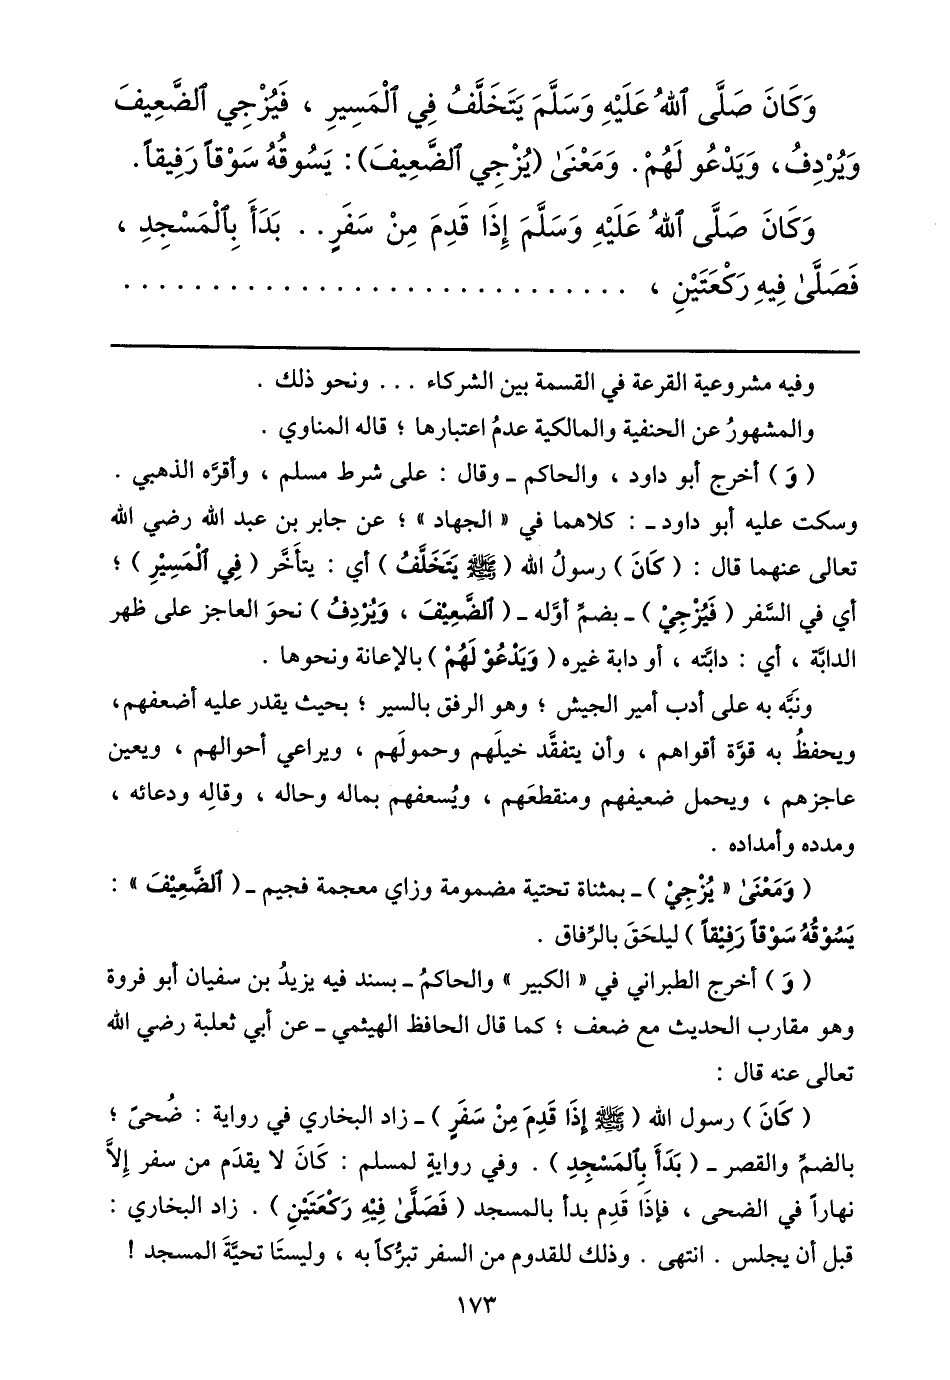 وَكَانَ صَلَّى ٱللهُ عَلَيْهِ وَسَلَّمَ يَتَخَلَّفُ فِي ٱلْمَسِيرِ ، فَيُزْجِي ٱلضَّعِيفَ
وَيُرْدِفُ، وَيَدْعُو لَهُمْ. وَمَعْنَىٰ (يُزْجِي ٱلضَّعِيفَ): يَسُوقُهُ سَوْقاً رَفِيقاً.
وَكَانَ صَلَّى ٱللهُ عَلَيْهِ وَسَلَّمَ إِذَا قَدِمَ مِنْ سَفَرٍ . . بَدَأَ بِٱلْمَسْجِدِ ،
فَصَلَّىٰ فِيهِ رَكْعَتَيْنِ ، . . . . . . . . . . . . . . . . . . . . . . . . . . . . .
وفيه مشروعية القرعة في القسمة بين الشركاء . . . ونحو ذلك .
والمشهورُ عن الحنفية والمالكية عدمُ اعتبارها ؛ قاله المناوي .
( وَ ) أخرج أبو داود ، والحاكم ـ وقال : على شرط مسلم ، وأقرَّه الذهبي .
وسكت عليه أبو داود ـ : كلاهما في « الجهاد » ؛ عن جابر بن عبد الله رضي الله
تعالى عنهما قال : ( كَانَ ) رسولُ الله ( ﷺ يَتَخَلَّفُ ) أي : يتأخَّر ( فِي ٱلْمَسِيْرِ ) ؛
أي في السَّفر ( فَيُزْجِيْ ) ـ بضمِّ أوَّله ـ ( ٱلضَّعِيْفَ ، وَيُرْدِفُ ) نحوَ العاجز على ظهر
الدابَّة ، أي : دابَّته ، أو دابة غيره ( وَيَدْعُوْ لَهُمْ ) بالإعانة ونحوها .
ونبَّه به على أدب أمير الجيش ؛ وهو الرفق بالسير ؛ بحيث يقدر عليه أضعفهم،
ويحفظُ به قوَّة أقواهم ، وأن يتفقَّد خيلَهم وحمولَهم ، ويراعي أحوالهم ، ويعين
عاجزهم ، ويحمل ضعيفهم ومنقطعَهم ، ويُسعفهم بماله وحاله ، وقالِه ودعائه ،
ومدده وأمداده .
( وَمَعْنَىٰ « يُزْجِيْ ) ـ بمثناة تحتية مضمومة وزاي معجمة فجيم ـ ( ٱلضَّعِيْفَ » :
يَسُوْقُهُ سَوْقاً رَفِيْقاً ) ليلحَقَ بالرِّفاق .
( وَ ) أخرج الطبراني في « الكبير » والحاكمُ ـ بسند فيه يزيدُ بن سفيان أبو فروة
وهو مقارب الحديث مع ضعف ؛ كما قال الحافظ الهيثمي ـ عن أبي ثعلبة رضي الله
تعالى عنه قال :
( كَانَ ) رسول الله ( ﷺ إِذَا قَدِمَ مِنْ سَفَرٍ ) ـ زاد البخاري في رواية : ضُحىً ؛
بالضمِّ والقصر ـ ( بَدَأَ بِٱلمَسْجِدِ ) . وفي روايةٍ لمسلم : كَانَ لا يقدَم من سفر إِلاَّ
نهاراً في الضحى ، فإذَا قَدِم بدأ بالمسجد ( فَصَلَّىٰ فِيْهِ رَكْعَتَيْنِ ) . زاد البخاري :
قبل أن يجلس . انتهى . وذلك للقدوم من السفر تبرُّكاً به ، وليستَا تحيَّةَ المسجد !
١٧٣